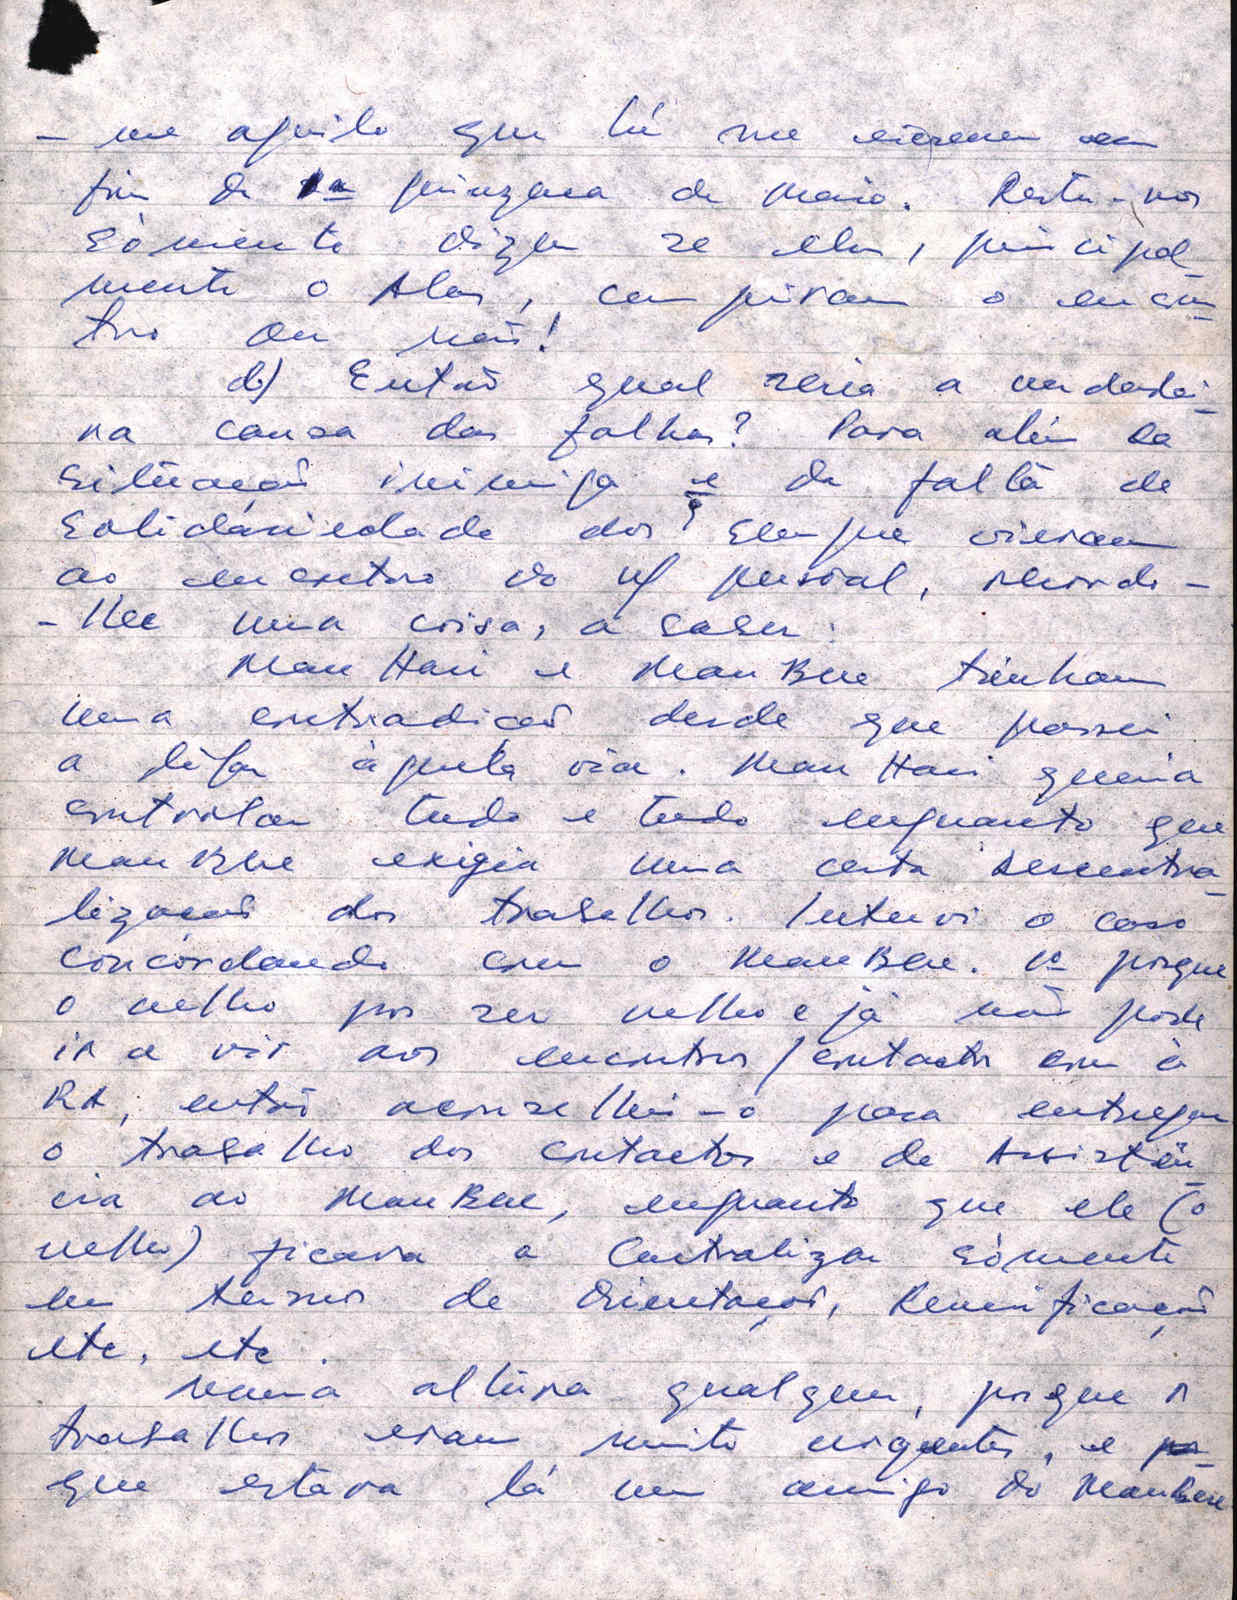 - me aquilo que lá me
fim da 1ª quinzena de Maio. Resta-nos
sòmente dizer se eles, principal-
mente o Alas, cumpriram o encon-
tro ou não!
d) Então qual seria a verdadei-
ra causa das falhas? Para além da
situação inimiga e da falta de
solidáriedade dos que vieram
ao encontro do n/ pessoal, recordo-
- lhe uma coisa, a saber:
Mau Hari e Mau Bere tinham
uma contradição desde que passei
a ligar àquela via. Mau Hari queria
controlar tudo e tudo enquanto que
Mau Bere exigia uma certa descentra-
lização dos trabalhos. Intervi o caso
concordando com o Mau Bere. 1º porque
o velho por ser velho e já não pode
ir e vir aos encontros/contactos com a
RA, então aconselhei-o para entregar
o trabalho dos contactos e de Assistên-
cia ao Mau Bere, enquanto que ele (o
velho) ficava a Centralizar sòmente
em termos de Orientação, Reunificação,
etc, etc.
Numa altura qualquer, porque os
trabalhos eram muito urgentes, e
que estava lá um amigo do Mau Bere